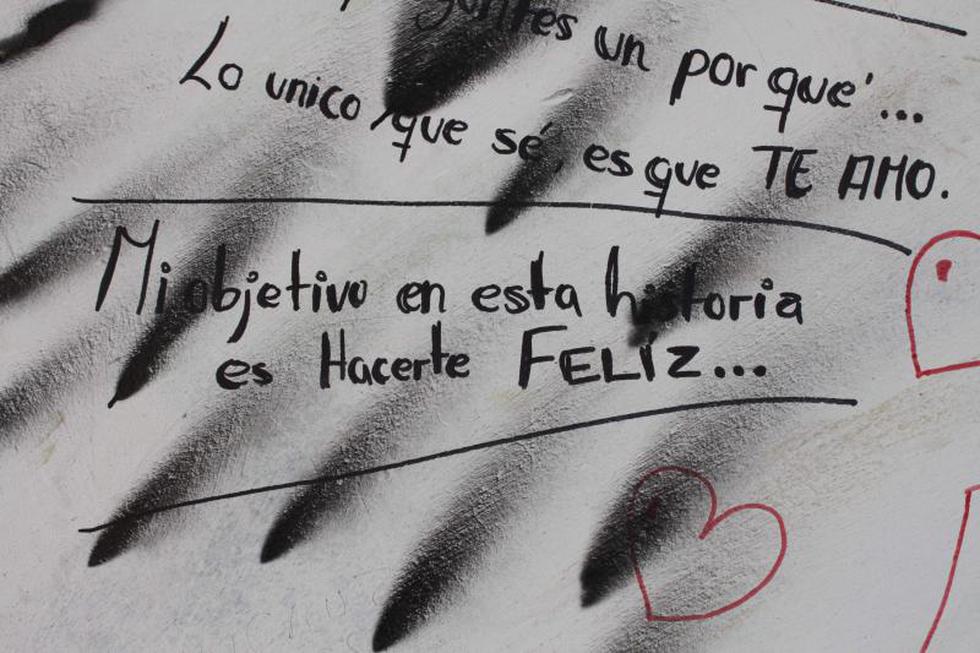 un porqué...
Lo unico que sé, es que TE AMO.
Mi objetivo en esta historia
es Hacerte FELIZ...